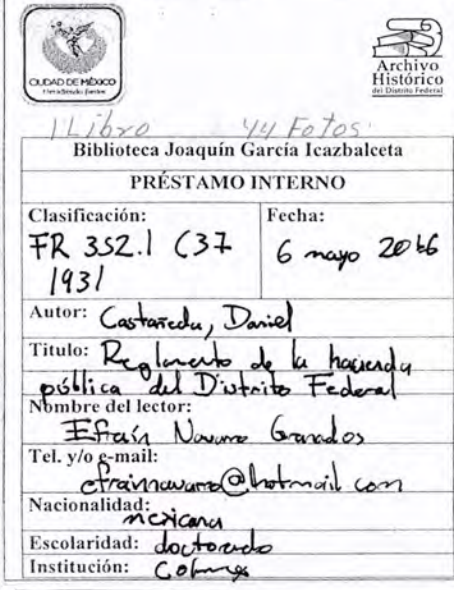 CIUDAD DE MÉXICO
Archivo
Histórico
del Distrito Federal
1 Libro 44 Fotos.
Biblioteca Joaquín García Icazbalceta
PRÉSTAMO INTERNO
Clasificación: Fecha:
FR 352.1 C37 6 mayo 2016
1931
Autor: Castañeda, Daniel
Titulo: Reglamento de la hacienda
pública del Distrito Federal
Nombre del lector:
Efraín Navarro Granados
Tel. y/o e-mail:
efrainnavarro@hotmail.com
Nacionalidad:
mexicana
Escolaridad: doctorado
Institución: Colmex